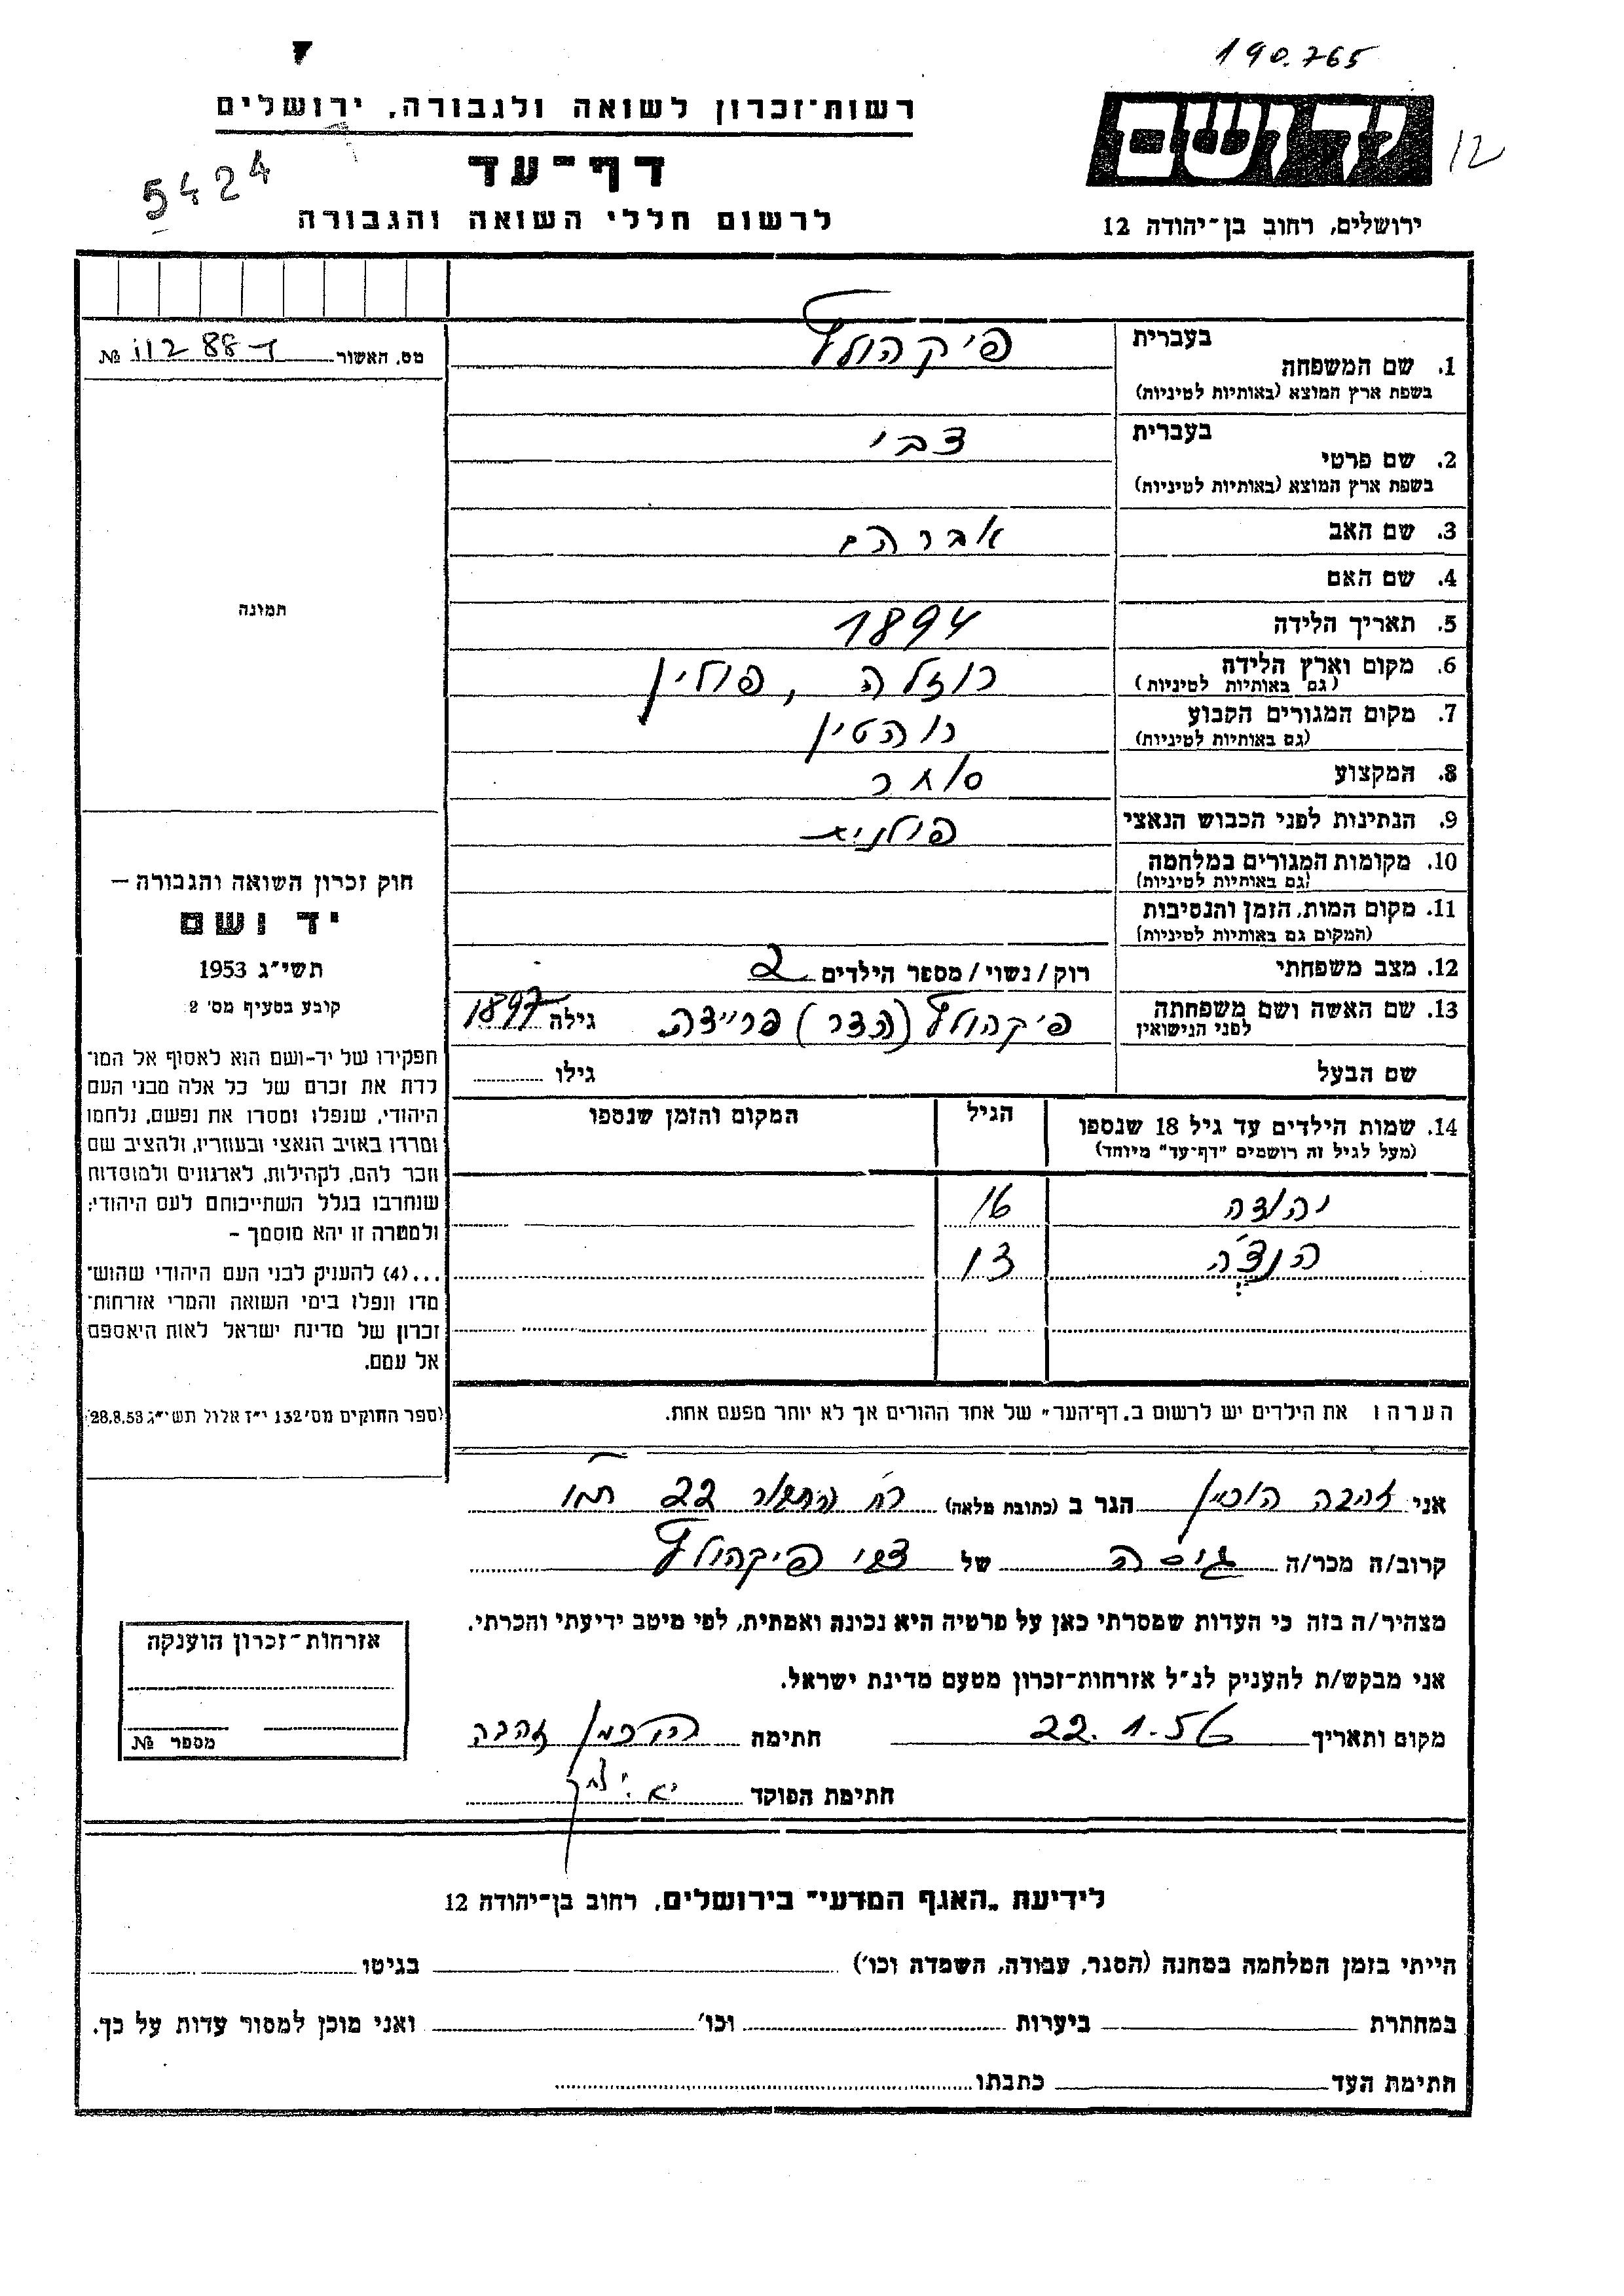 190.765
רשות־זכרון לשואה ולגבורה, ירושלים
5424
דף־עד
ידושם
12
לרשום חללי השואה והגבורה
ירושלים, רחוב בן־יהודה 12
מס. האשור № 11288
1. שם המשפחה בעברית פיקהולץ
בשפת ארץ המוצא (באותיות לטיניות)
2. שם פרטי בעברית צבי
בשפת ארץ המוצא (באותיות לטיניות)
3. שם האב אברהם
4. שם האם
5. תאריך הלידה 1894
6. מקום וארץ הלידה (גם באותיות לטיניות) רוזלה, פולין
7. מקום המגורים הקבוע (גם באותיות לטיניות) רוהטין
8. המקצוע סוחר
9. הנתינות לפני הכבוש הנאצי פולנית
10. מקומות המגורים במלחמה (גם באותיות לטיניות)
11. מקום המות, הזמן והנסיבות (המקום גם באותיות לטיניות)
12. מצב משפחתי רוק/נשוי/מספר הילדים 2
13. שם האשה ושם משפחתה לפני הנישואין פיקהולץ (הדר) פריידה גילה 1897
שם הבעל גילו
14. שמות הילדים עד גיל 18 שנספו הגיל המקום והזמן שנספו
(מעל לגיל זה רושמים "דף־עד" מיוחד)
יהודה 16
13
הערה ו את הילדים יש לרשום ב„דף־העד" של אחד ההורים אך לא יותר מפעם אחת.
תמונה
חוק זכרון השואה והגבורה –
יד ושם
תשי"ג 1953
קובע בסעיף מס' 2
תפקידו של יד-ושם הוא לאסוף אל המו־
לדת את זכרם של כל אלה מבני העם
היהודי, שנפלו ומסרו את נפשם, נלחמו
ומרדו באויב הנאצי ובעוזריו, ולהציב שם
וזכר להם, לקהילות, לארגונים ולמוסדות
שנחרבו בגלל השתייכותם לעם היהודי;
ולמטרה זו יהא מוסמך –
...(4) להעניק לבני העם היהודי שהוש־
מדו ונפלו בימי השואה והמרי אזרחות־
זכרון של מדינת ישראל לאות היאספם
אל עמם.
(ספר החוקים מס' 132 י"ז אלול תשי"ג 28.8.53)
אני זהבה הוכמן הגר ב (כתובת מלאה) רח' 22
קרוב/ה מכר/ה גיסה של צבי פיקהולץ
מצהיר/ה בזה כי העדות שמסרתי כאן על פרטיה היא נכונה ואמתית, לפי מיטב ידיעתי והכרתי.
אני מבקש/ת להעניק לנ"ל אזרחות-זכרון מטעם מדינת ישראל.
מקום ותאריך 22.1.56 חתימה הוכמן זהבה
חתימת הפוקד
אזרחות־זכרון הוענקה
מספר №
לידיעת „האגף המדעי" בירושלים, רחוב בן־יהודה 12
הייתי בזמן המלחמה במחנה (הסגר, עבודה, השמדה וכו') בגיטו
במחתרת ביערות וכו' ואני מוכן למסור עדות על כך.
חתימת העד כתבתו